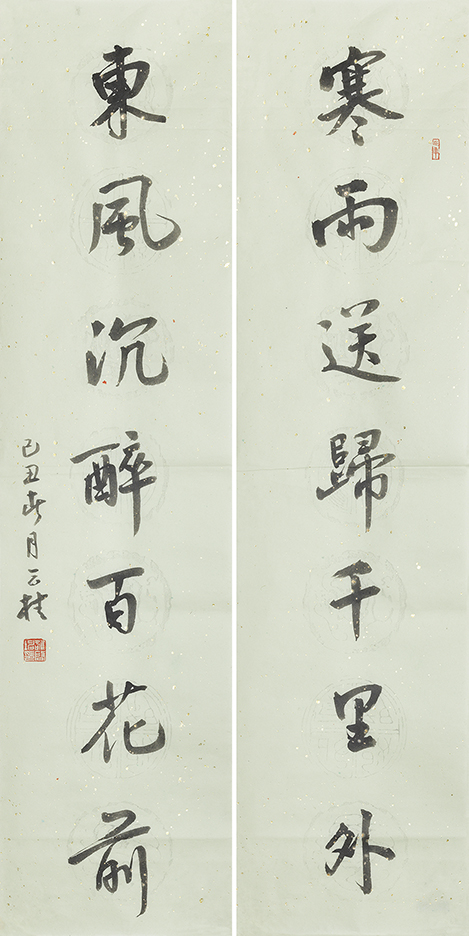 寒雨送歸千里外
東風沉醉百花前
己丑春月云桂